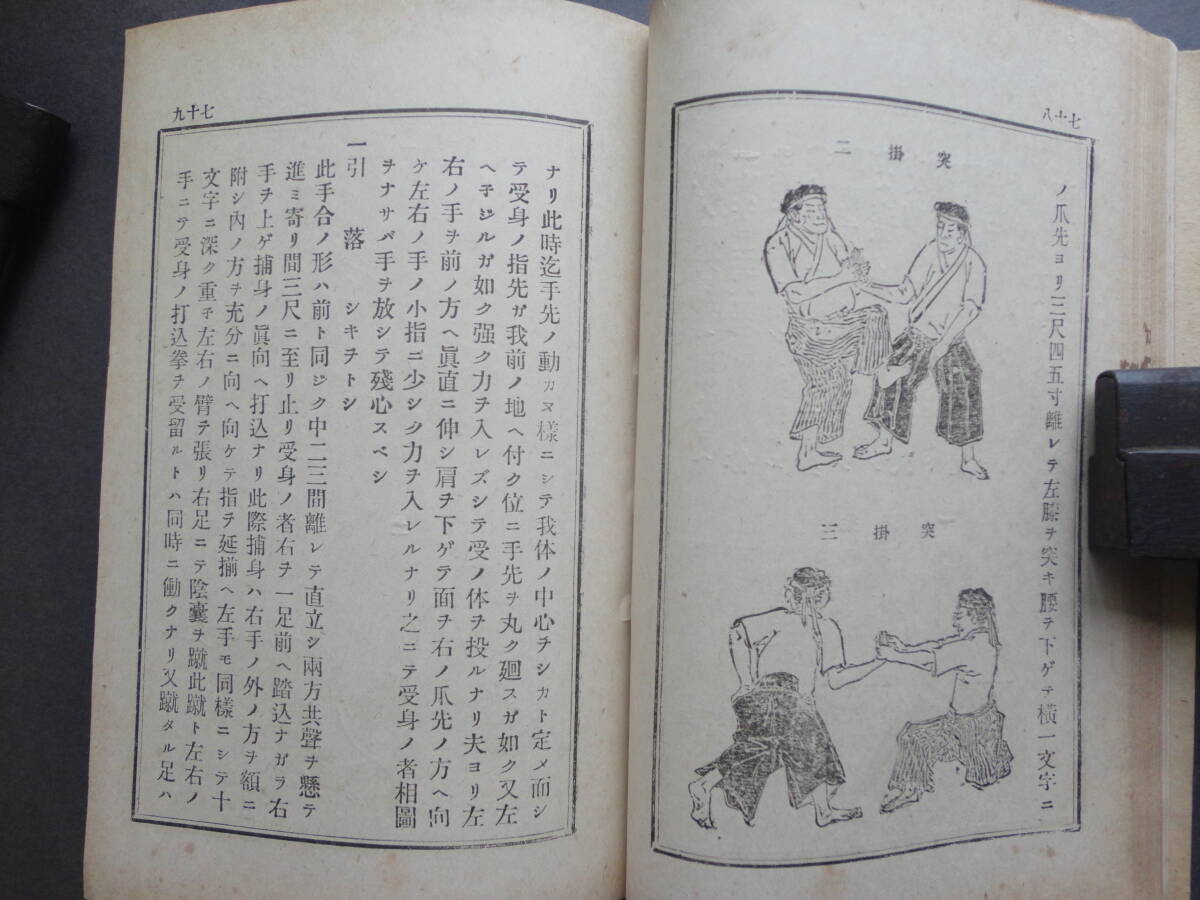 七十八
ノ爪先ヨリ三尺四五寸離レテ左膝ヲ突キ腰ヲ下ゲテ橫一文字ニ
突掛二
突掛三
七十九
ナリ此時迄手先ノ動カヌ樣ニシテ我体ノ中心チシカト定メ而シ
テ受身ノ指先ガ我前ノ地ヘ付ク位ニ手先ヲ丸ク廻スガ如ク又左
ヘ子ジルガ如ク强ク力チ入レズシテ受ノ体ヲ投ルナリ夫ヨリ左
右ノ手ヲ前ノ方ヘ眞直ニ伸シ肩ヲ下ゲテ面チ右ノ爪先ノ方ヘ向
ケ左右ノ手ノ小指ニ少シク力ヲ入レルナリ之ニテ受身ノ者相圖
ヲナサバ手ヲ放シテ殘心スベシ
一引落シキヲトシ
此手合ノ形ハ前ト同ジク中二三間離レテ直立シ兩方共聲ヲ懸テ
進ミ寄リ間三尺ニ至リ止リ受身ノ者右ヲ一足前ヘ踏込ナガラ右
手ヲ上ゲ捕身ノ眞向ヘ打込ナリ此際捕身ハ右手ノ外ノ方ヲ額ニ
附シ內ノ方ヲ充分ニ向ヘ向ケテ指ヲ延揃ヘ左手モ同樣ニシテ十
文字ニ深ク重子左右ノ臂テ張リ右足ニテ陰囊ヲ蹴此蹴ト左右ノ
手ニテ受身ノ打込拳ヲ受留ルトハ同時ニ働クナリ又蹴タル足ハ